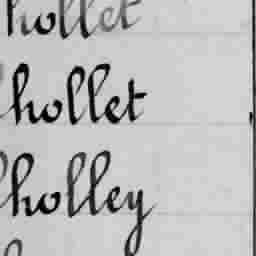 hollet
hollet
holley